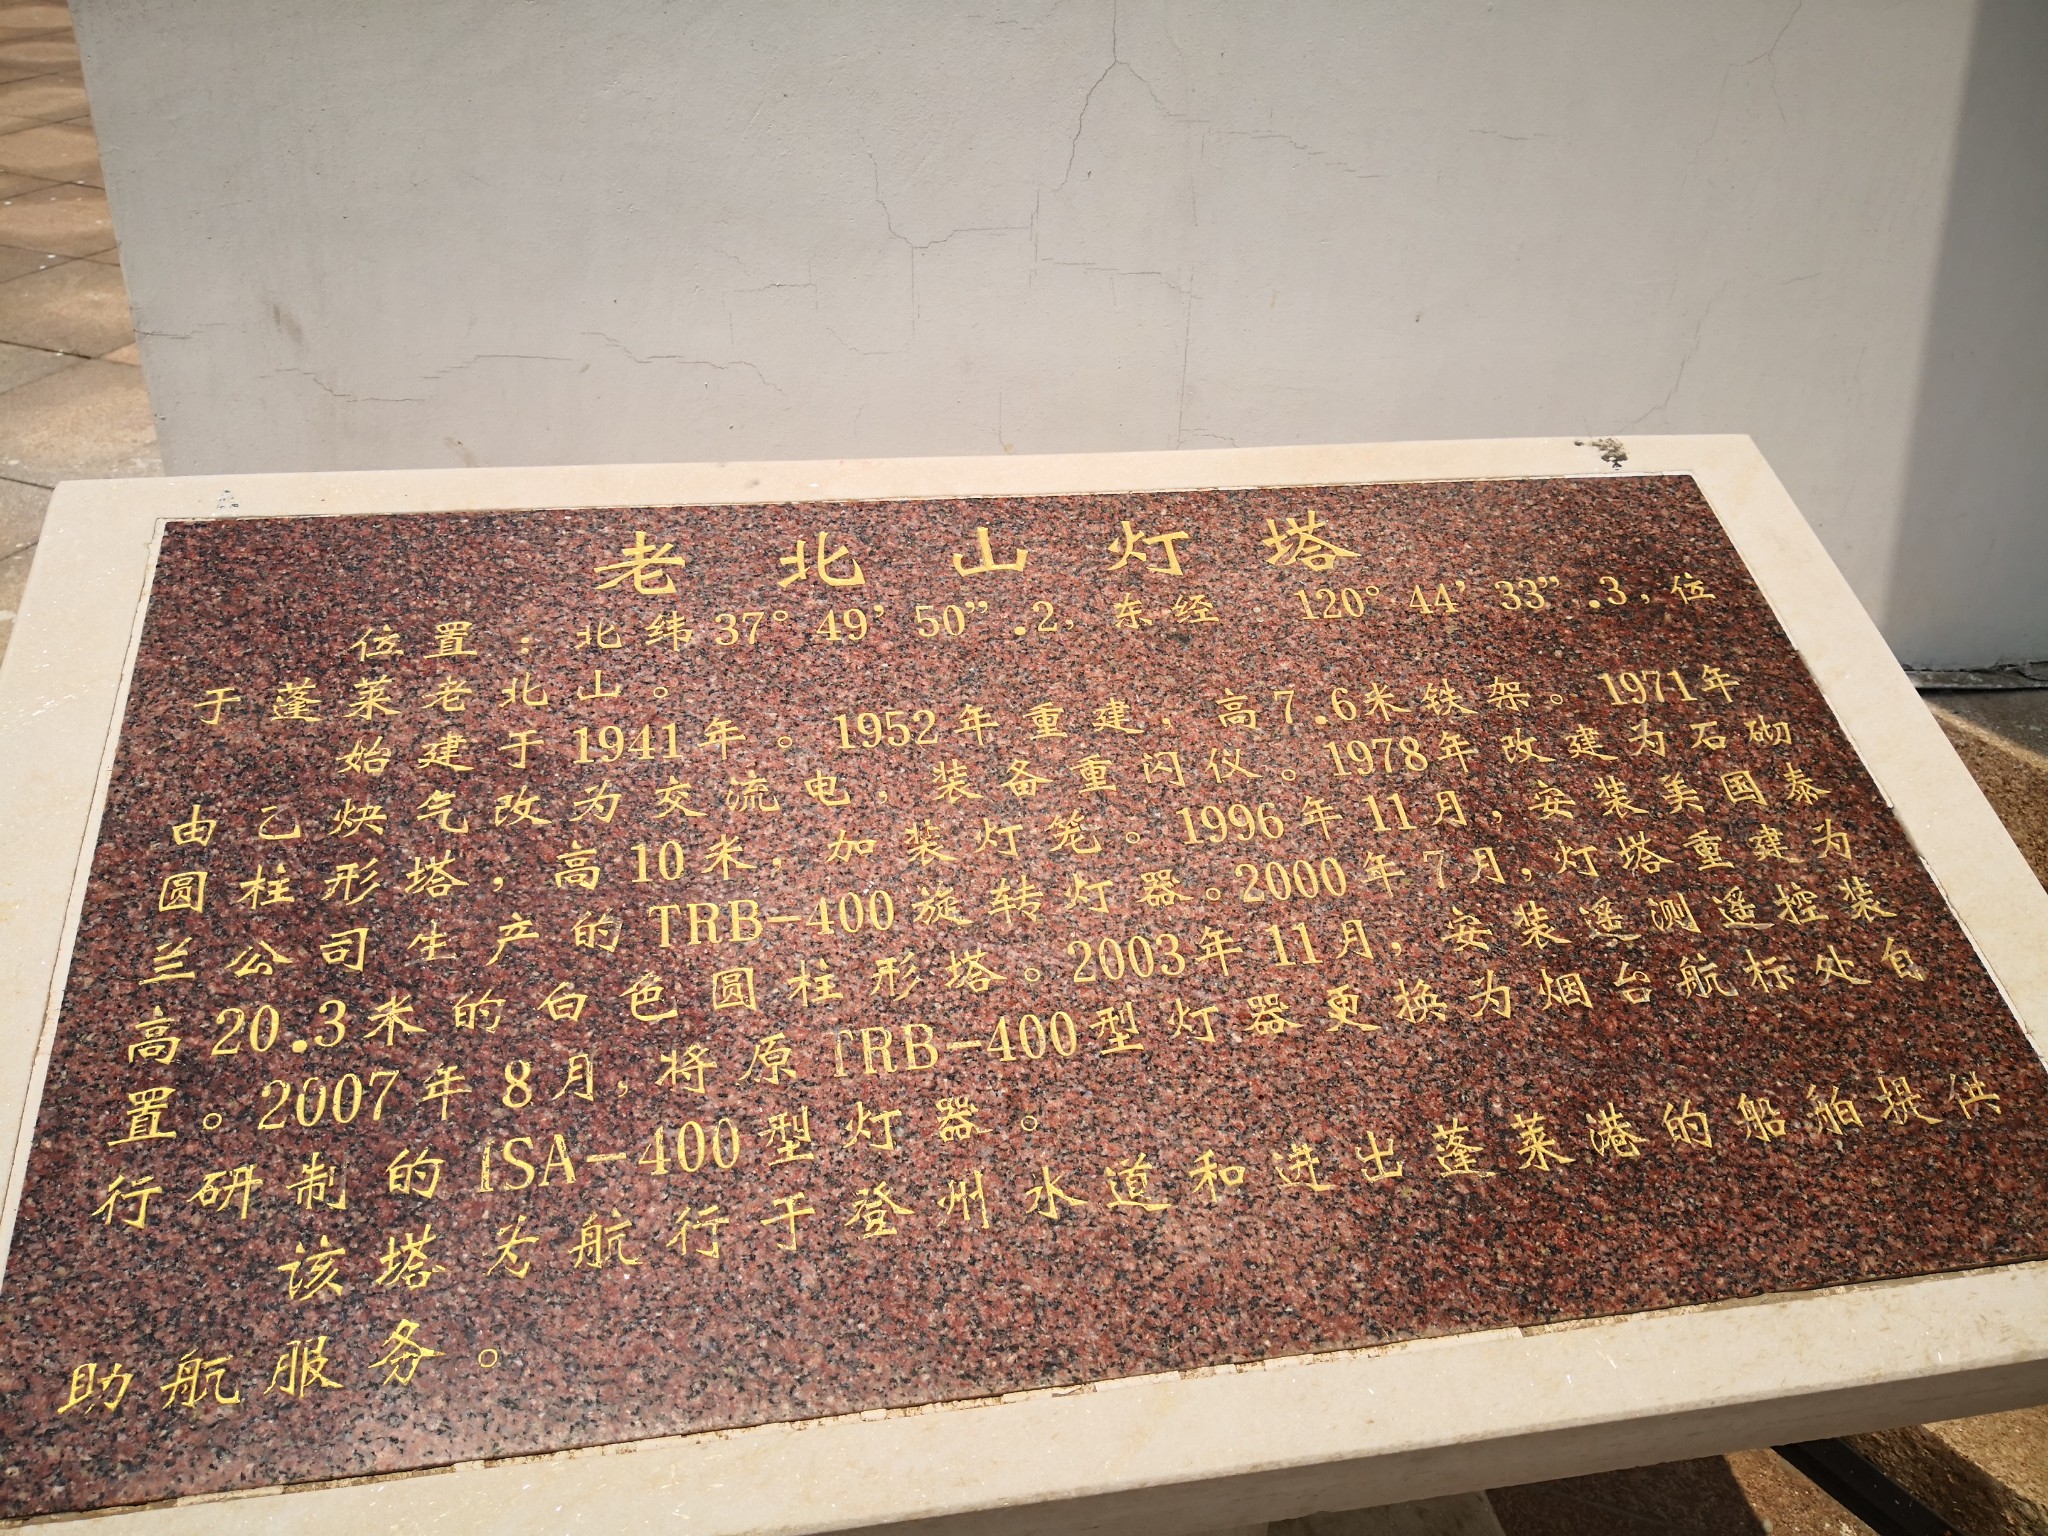 老北山灯塔
位置：北纬37°49’50”.2，东经 120°44’33”.3，位
于蓬莱老北山。
始建于1941年。1952年重建，高7.6米铁架。1971年
由乙炔气改为交流电，装备重闪仪。1978年改建为石砌
圆柱形塔，高10米，加装灯笼。1996年11月，安装美国泰
兰公司生产的TRB-400旋转灯器。2000年7月，灯塔重建为
高20.3米的白色圆柱形塔。2003年11月，安装遥测遥控装
置。2007年8月，将原TRB-400型灯器更换为烟台航标处自
行研制的ISA-400型灯器。
该塔为航行于登州水道和进出蓬莱港的船舶提供
助航服务。